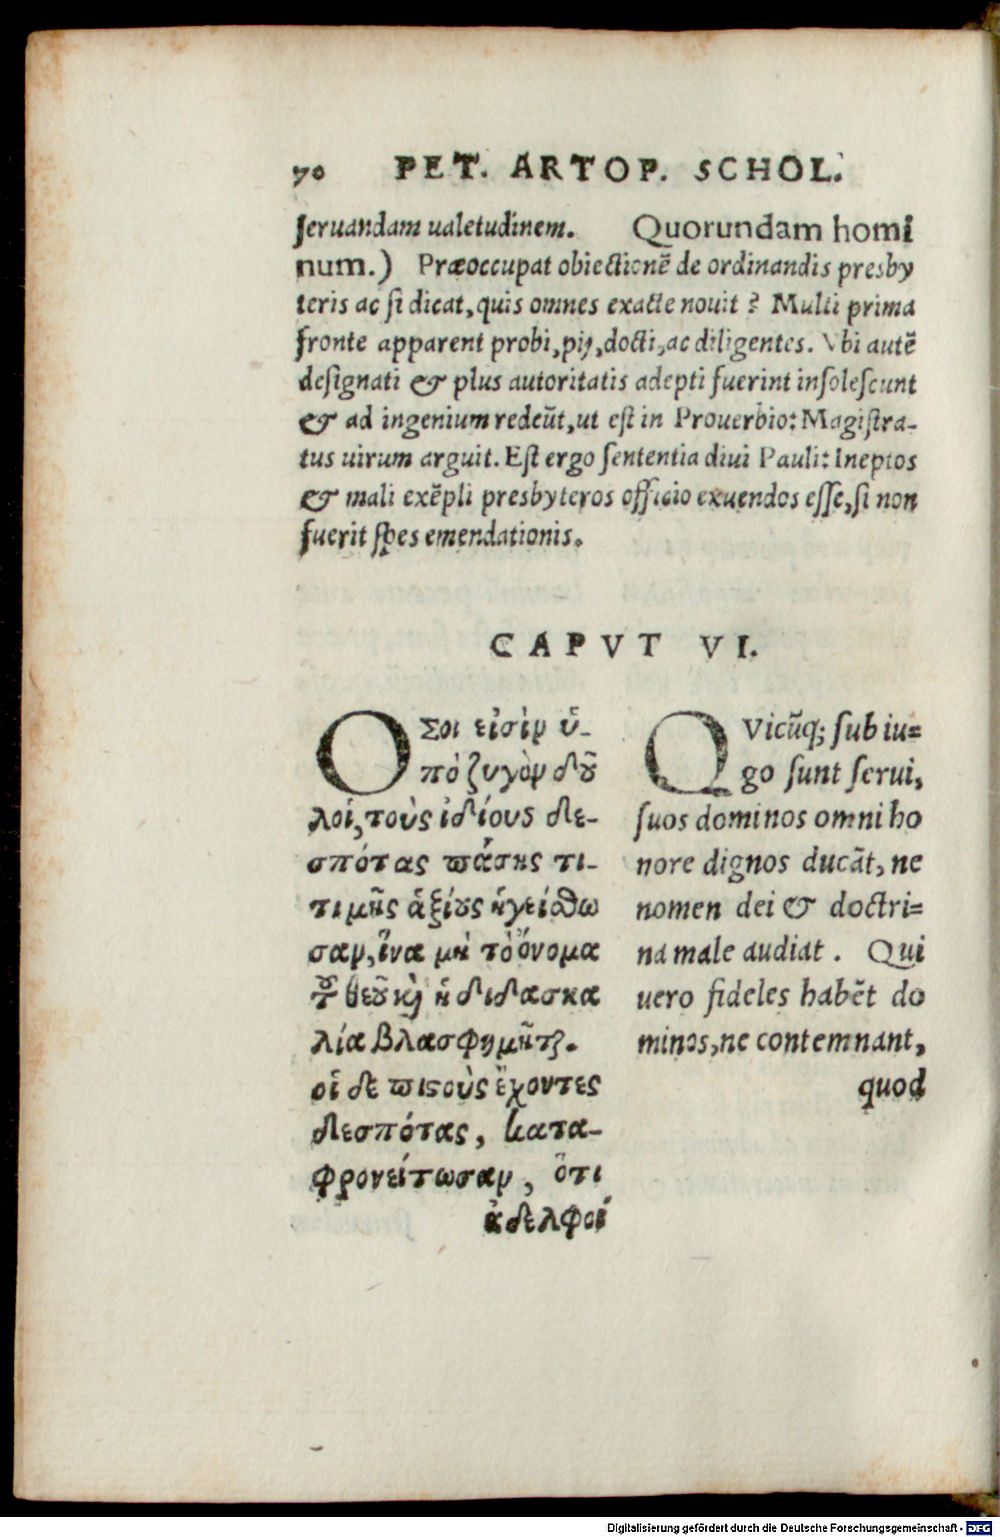 70 PET. ARTOP. SCHOL.
ſeruandam ualetudinem. Quorundam homi
num.) Præoccupat obiectionẽ de ordinandis presby
teris ac ſi dicat, quis omnes exacte nouit? Multi prima
fronte apparent probi, pij, docti, ac diligentes. Vbi autẽ
deſignati & plus autoritatis adepti fuerint inſoleſcunt
& ad ingenium redeũt, ut eſt in Prouerbio: Magiſtra-
tus uirum arguit. Eſt ergo ſententia diui Pauli: Ineptos
& mali exẽpli presbyteros officio exuendos eſſe, ſi non
fuerit ſpes emendationis.
CAPVT VI.
ΟΣοι εἰσὶν ὑ-
πὸ ζυγὸν δοῦ
λοι, τοὺς ἰδίους δε-
σπότας πάσης τι-
τιμῆς ἀξίους ἡγείσθω
σαν, ἵνα μὴ τὸ ὄνομα
τοῦ θεοῦ καὶ ἡ διδασκα
λία βλασφημῆται.
οἱ δὲ πιστοὺς ἔχοντες
δεσπότας, κατα-
φρονείτωσαν, ὅτι
ἀδελφοί
QVicũq; ſub iu=
go ſunt ſerui,
ſuos dominos omni ho
nore dignos ducãt, ne
nomen dei & doctri=
na male audiat. Qui
uero fideles habẽt do
minos, ne contemnant,
quod
Digitalisierung gefördert durch die Deutsche Forschungsgemeinschaft - DFG